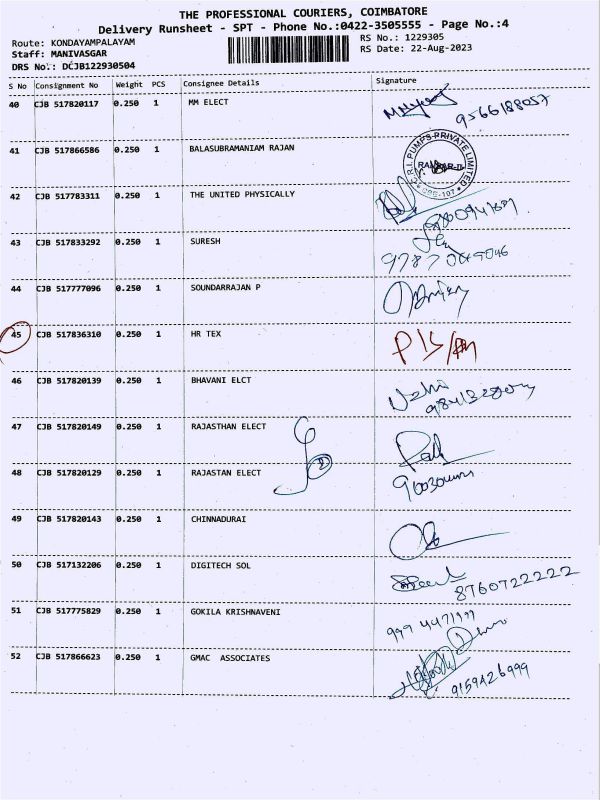 THE PROFESSIONAL COURIERS, COIMBATORE
Delivery Runsheet - SPT - Phone No.:0422-3505555 - Page No.:4
Route: KONDAYAMPALAYAM
RS No.: 1229305
Staff: MANIVASGAR
RS Date: 22-Aug-2023
DRS No.: DCJB122930504
S No Consignment No Weight PCS Consignee Details Signature
40 CJB 517820117 0.250 1 MM ELECT
9566188057
41 CJB 517866586 0.250 1 BALASUBRAMANIAM RAJAN
C.R.I. PUMPS PRIVATE LIMITED
42 CJB 517783311 0.250 1 THE UNITED PHYSICALLY
43 CJB 517833292 0.250 1 SURESH
44 CJB 517777096 0.250 1 SOUNDARRAJAN P
45 CJB 517836310 0.250 1 HR TEX
46 CJB 517820139 0.250 1 BHAVANI ELCT
47 CJB 517820149 0.250 1 RAJASTHAN ELECT
48 CJB 517820129 0.250 1 RAJASTAN ELECT
49 CJB 517820143 0.250 1 CHINNADURAI
50 CJB 517132206 0.250 1 DIGITECH SOL
8760722222
51 CJB 517775829 0.250 1 GOKILA KRISHNAVENI
52 CJB 517866623 0.250 1 GMAC ASSOCIATES
9159426999